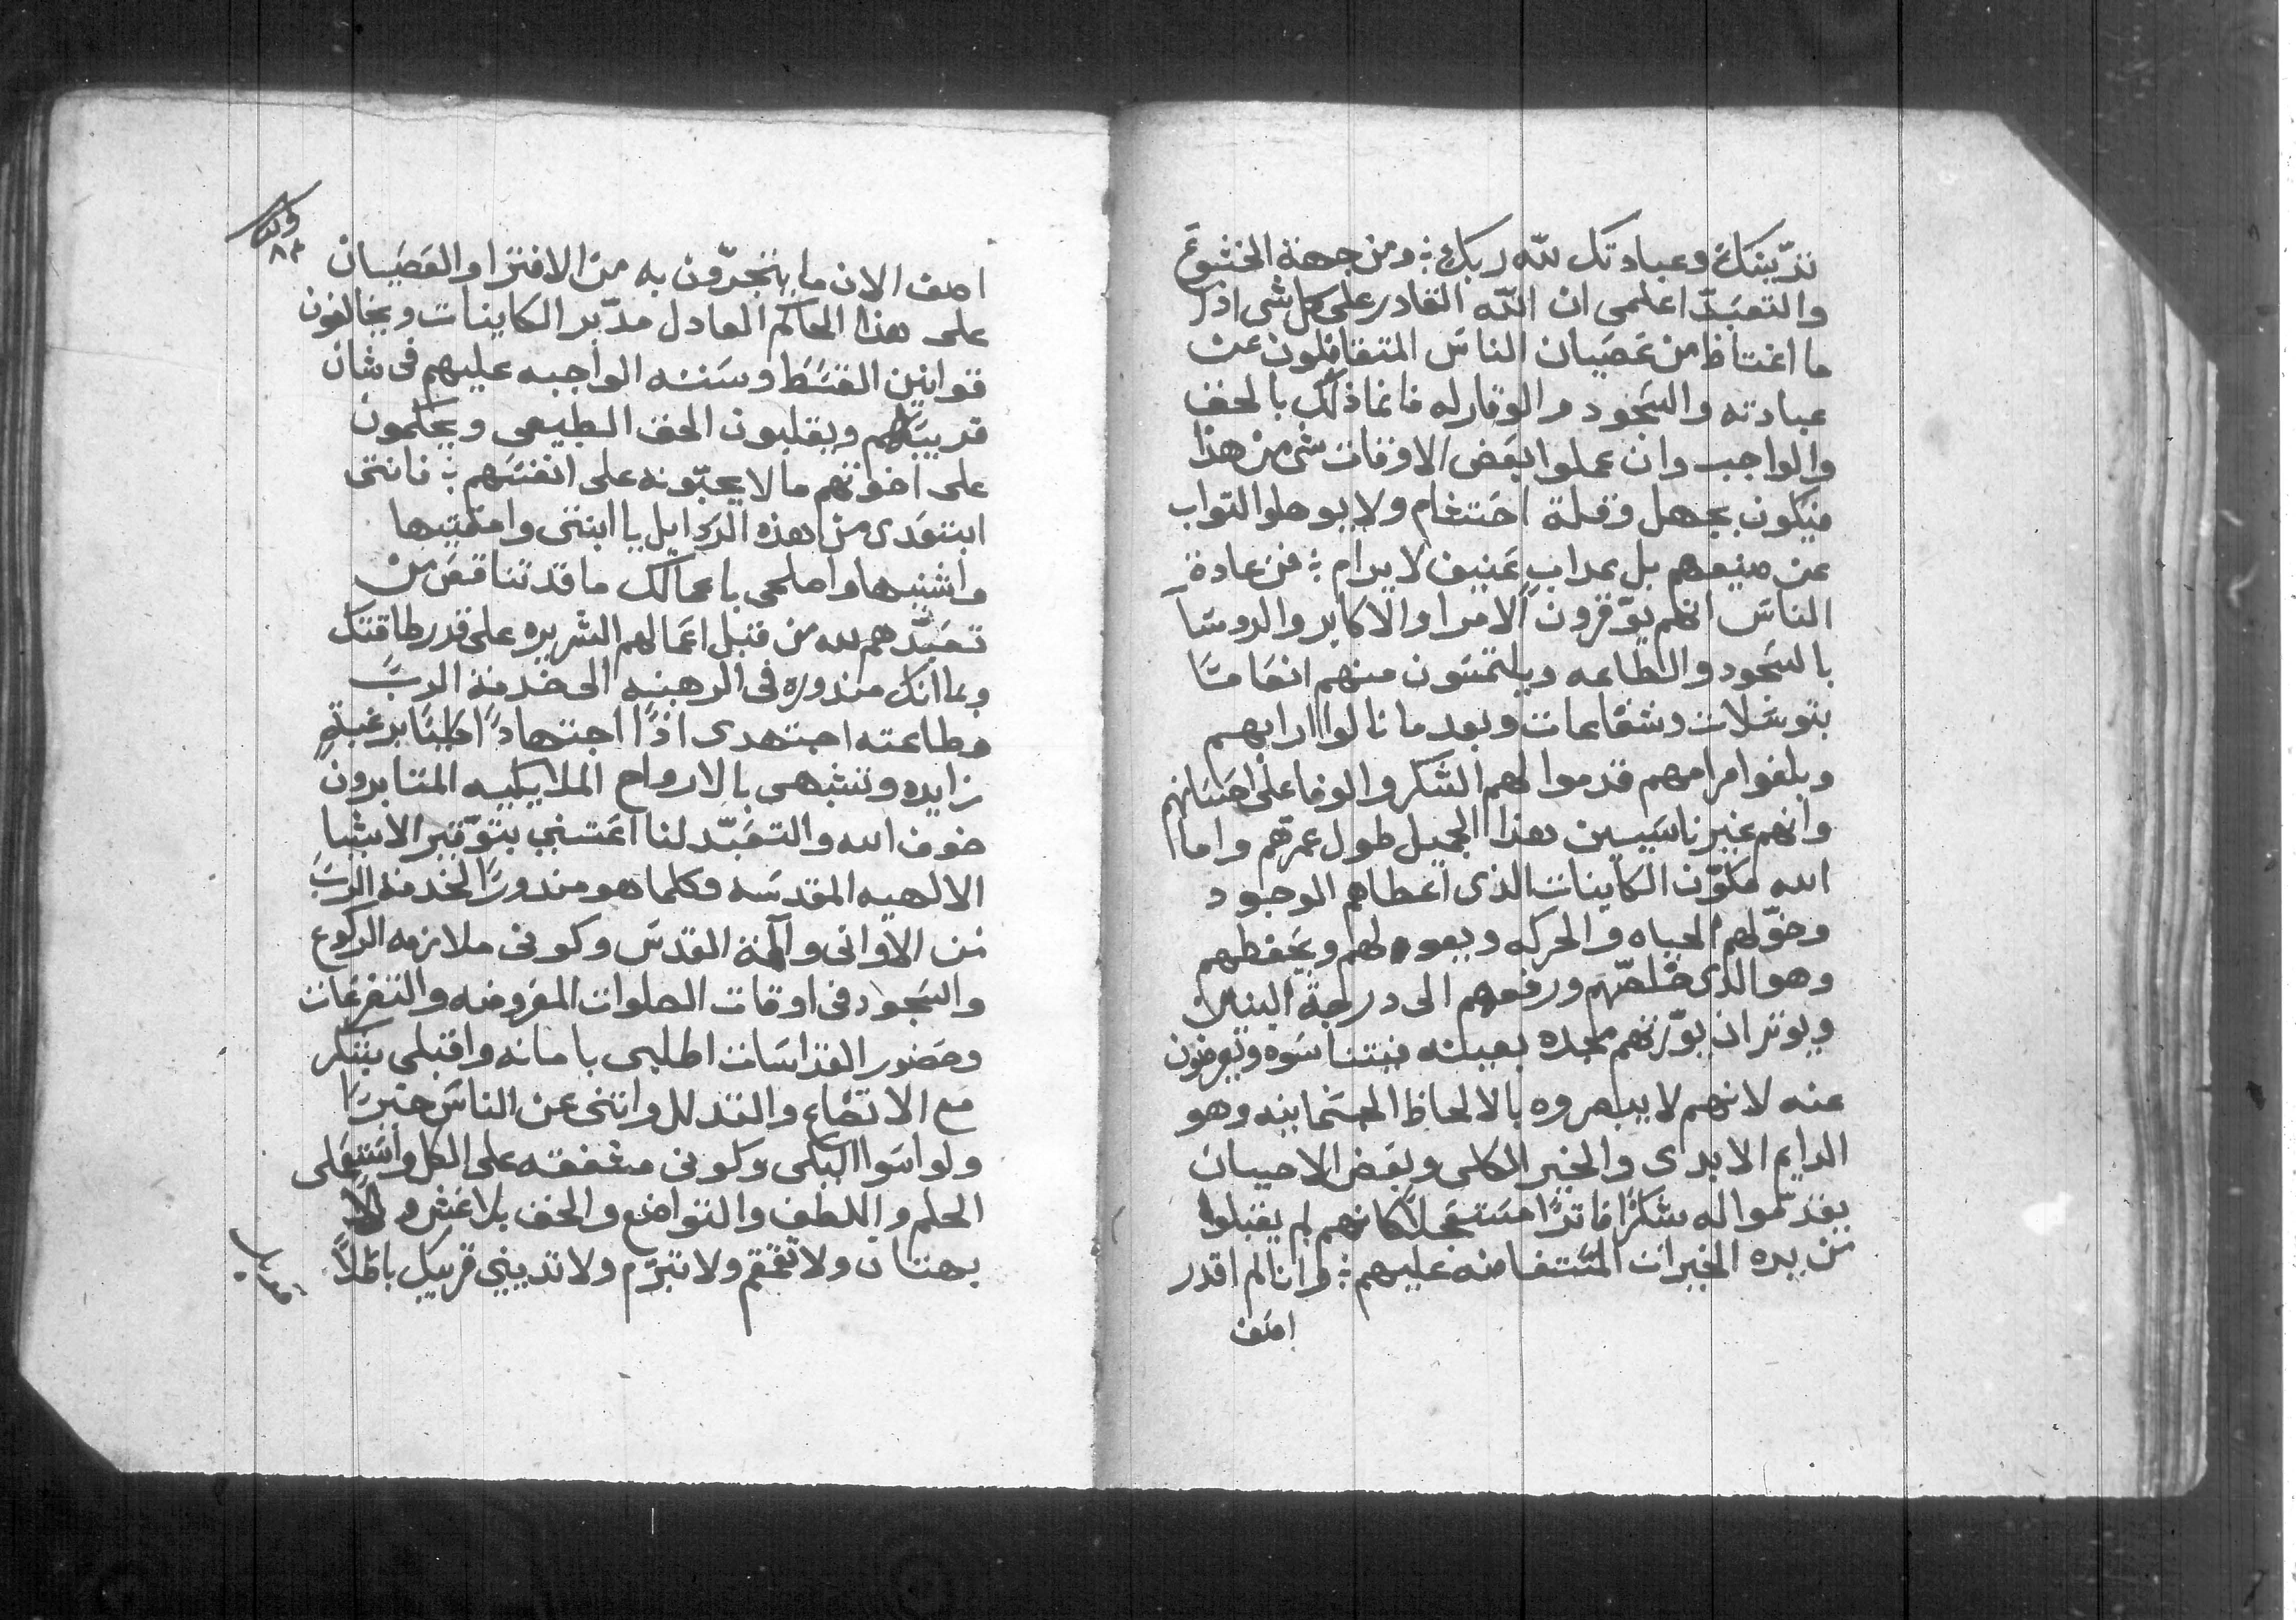 تديّنك وعبادتك للّه ربك ؛ ومن جهة الخشوع
والتعبّد اعلمى ان اللّه القادر على كل شى اذا
ما اغتاظ من عصيان الناس المتغافلون عن
عبادته والسجود والوقار له فانما ذلك بالحق
والواجب وان عملوا بعض الاوقات شى من هذا
فيكون بجهل وقلة احتشام ولا يوهلوا التواب
عن صنيعهم بل عداب عنيف لا يرام ؛ فمن عادة
الناس انهم يوّقرون الامرا والاكابر والروسا
بالسجود والطاعه ويلتمسون منهم انعامًا
بتوسلات وشفاعات وبعد ما نالوا ارابهم
وبلغوا مرامهم قدموا لهم الشكر والوفا على احسانهم
وانهم غير ناسيين هذا الجميل طول عمرهم واما
الله مكوّن الكاينات الذى اعطاهم الوجود
وخوّلهم الحياه والحركه ويعولهم ويحفظهم
وهو الذى خلصّهم ورفعهم الى درجة البنين
ويوثر ان يورّثهم مجده بعينه فيتناسوه ويعرضون
عنه لانهم لا يبصروه بالالحاظ الجسمانيه وهو
الدايم الابدى والخير الكلى وبعض الاحيان
يقدّموا له شكرًا فاترًا مستعجلاً كانهم لم يقبلوا
من يده الخيرات المستفاضه عليهم ؛ وانا لم اقدر
اصف
اصف الان ما يتجرّون به من الافترا والعصيان
على هذا الحاكم العادل مدّبر الكاينات ويخالفون
قوانين القسط وسننه الواجبه عليهم فى شان
قريبهم ويقلبون الحق الطبيعى ويحكمون
على اخوتهم ما لا يحبّونه على انفسهم ؛ فانتى
ابتعدى من هذه الردايل يا ابنتى وامقتيها
واشنيها واصلحى باعمالك ما قد تناقص من
تعبّدهم لله من قبل اعمالهم الشريره على قدر طاقتك
وبما انك مندوره فى الرهبنه الى خدمة الربّ
وطاعته اجتهدى اذًا اجتهادًا برغبةٍ
زايده وتشبهى بالارواح الملايكيه المتابرون
خوف الله والتعبّد لنا اعتنى بتوّقير الاشيا
الالهيه المقدسه وكلما هو مندورًا لخدمة الربّ
من الاوانى والة القدس وكونى ملازمه الركوع
والسجود فى اوقات الصلوات المفروضه والتضرعات
وحضور القداسات اطلبى بامانه واقبلى بشكر
مع الاتضاع والتدلل وانتى عن الناس خيرًا
ولو اسوا اليكى وكونى مشفقه على الكل واستعملى
الحلم واللطف والتواضع والحق بلا غش ولا
بهتان ولا تقمقم ولا تبرّم ولا تدينى قريبك باطلاً